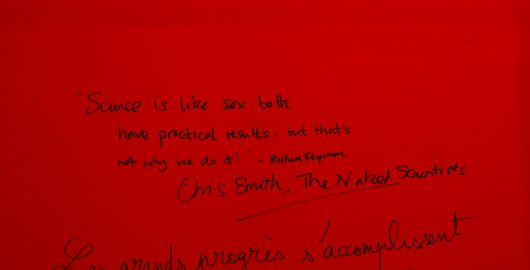 "Science is like sex both
have practical results - but that's
not why we do it!" - Richard Feynman
Chris Smith, The Naked Scientists
Les grands progrès s'accomplissent